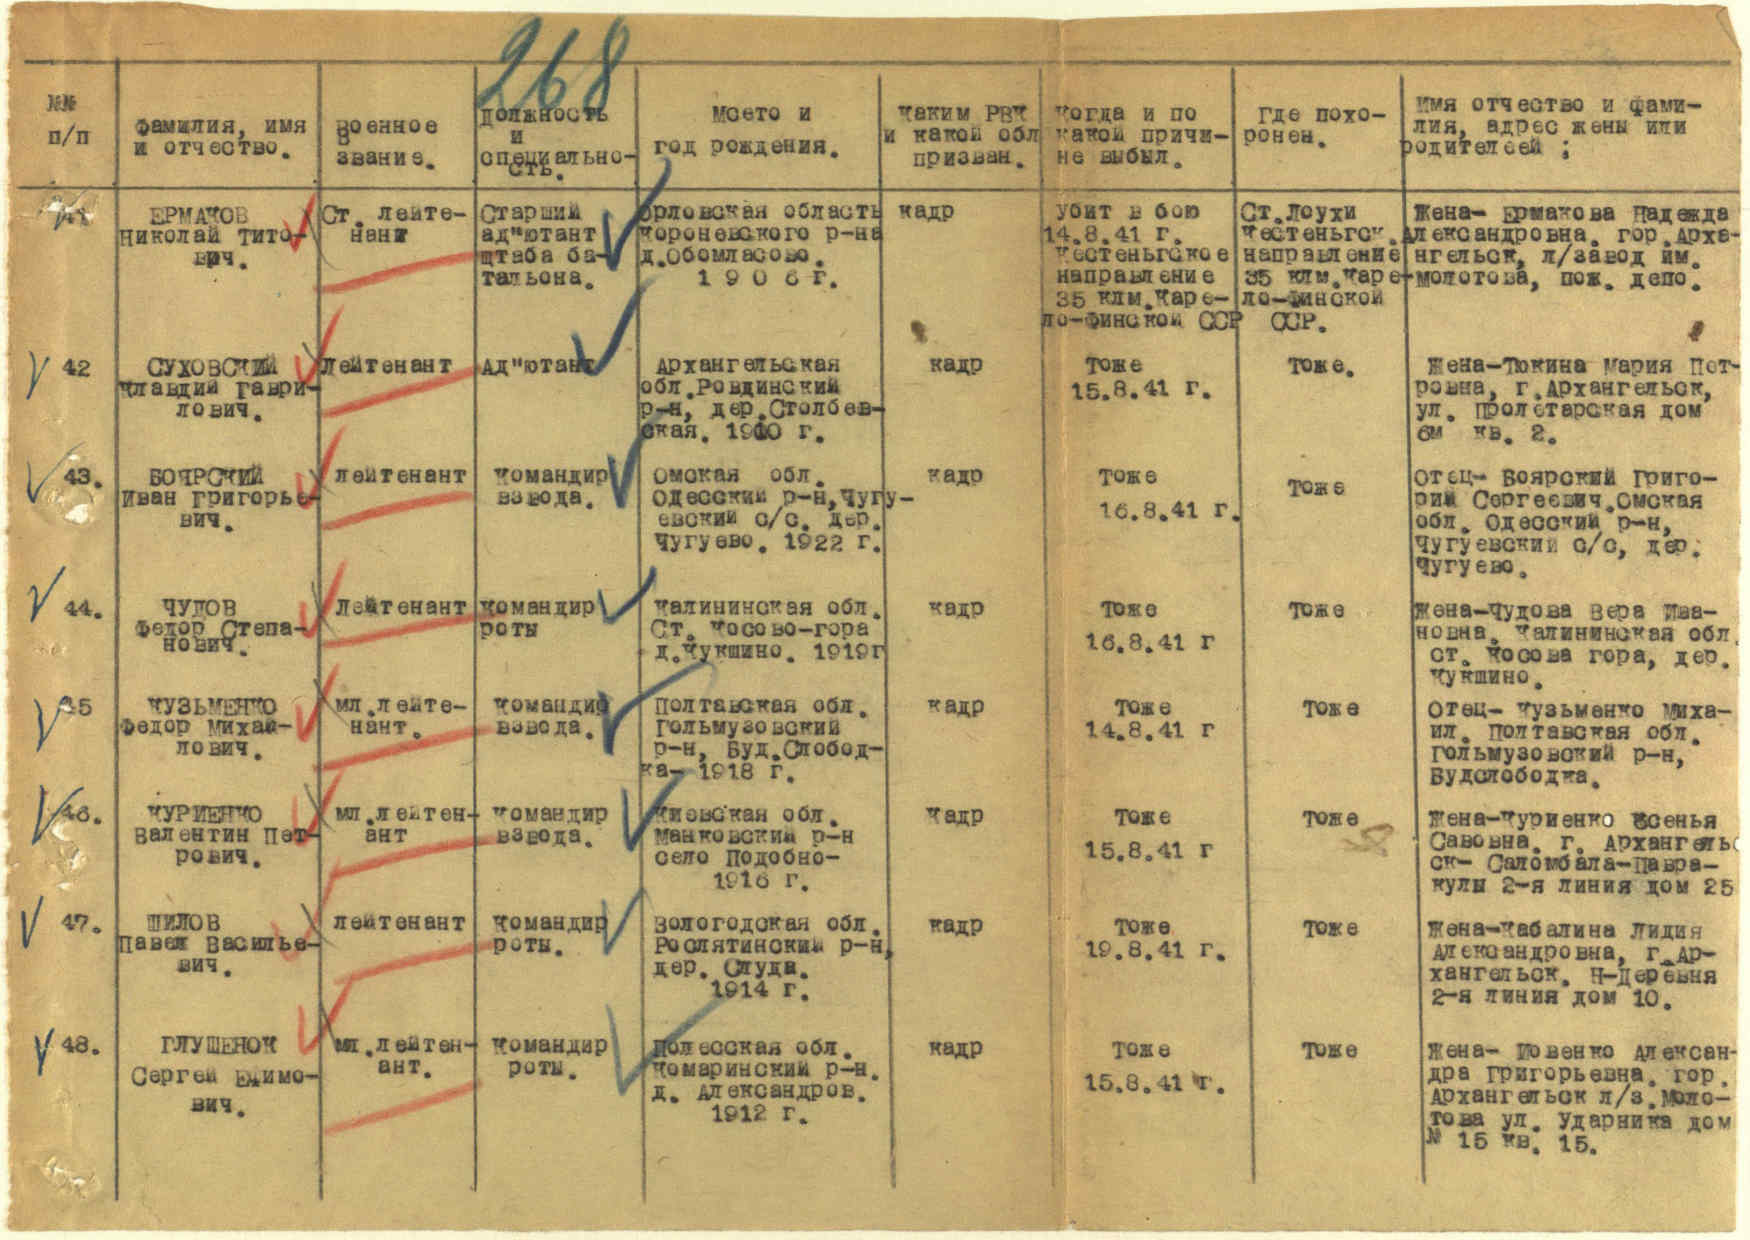 268
№№ п/п
Фамилия, имя и отчество.
Военное звание.
Должность и специально-сть.
Мсето и год рождения.
Каким РВК и какой обл призван.
Когда и по какой причи-не выбыл.
Где похо-ронен.
Имя отчество и фами-лия, адрес жены или родителсей ;
41
ЕРМАКОВ
Николай Тито-
вич.
Ст. лейте-
нант
Старший
ад"ютант
штаба ба-
тальона.
Орловская область
Короневского р-на
д.Обомласово.
1 9 0 6 г.
кадр
Убит в бою
14.8.41 г.
Кестеньгское
направление
35 клм.Каре-
ло-Финской ССР
Ст.Лоухи
Кестеньгск.
направление
35 клм.Каре-
ло-Финской
ССР.
Жена- Ермакова Надежда
Александровна. гор.Арха-
нгельск, л/завод им.
Молотова, пож. депо.
42
СУХОВСКИЙ
Клавдий Гаври-
лович.
Лейтенант
Ад"ютант
Архангельская
обл.Ровдинский
р-н, дер.Столбев-
ская. 1910 г.
кадр
Тоже
15.8.41 г.
Тоже.
Жена-Тюкина Мария Пет-
ровна, г.Архангельск,
ул. Пролетарская дом
6м кв. 2.
43.
БОЯРСКИЙ
Иван Григорье-
вич.
лейтенант
Командир
взвода.
Омская обл.
Одесский р-н,Чугу-
евский с/с. дер.
Чугуево. 1922 г.
кадр
Тоже
16.8.41 г.
Тоже
Отец- Боярский Григо-
рий Сергеевич.Омская
обл. Одесский р-н,
Чугуевский с/с, дер.
Чугуево.
44.
ЧУДОВ
Федор Степа-
нович.
Лейтенант
Командир
роты
Калининская обл.
Ст. Косово-гора
д.Кукшино. 1919г
кадр
Тоже
16.8.41 г
Тоже
Жена-Чудова Вера Ива-
новна. Калининская обл.
ст. Косова гора, дер.
Кукшино.
45
КУЗЬМЕНКО
Федор Михай-
лович.
мл.лейте-
нант.
Командир
взвода.
Полтавская обл.
Гольмузовский
р-н, Буд.Слобод-
ка- 1918 г.
кадр
Тоже
14.8.41 г
Тоже
Отец- Кузьменко Миха-
ил. Полтавская обл.
Гольмузовский р-н,
Будслободка.
46.
КУРИЕНКО
Валентин Пет-
рович.
мл.лейтен-
ант
Командир
взвода.
Киевская обл.
Манковский р-н
село Подобно-
1916 г.
кадр
Тоже
15.8.41 г
Тоже
Жена-Куриенко Ксенья
Савовна. г. Архангель
ск- Саломбала-Лавра-
кулы 2-я линия дом 25
47.
ШИЛОВ
Павел Василье-
вич.
лейтенант
Командир
роты.
Вологодская обл.
Рослятинский р-н,
дер. Слуда.
1914 г.
кадр
Тоже
19.8.41 г.
Тоже
Жена-Кабалина Лидия
Александровна, г.Ар-
хангельск. Н-Деревня
2-я линия дом 10.
48.
ГЛУШЕНОК
Сергей Ефимо-
вич.
мл.лейтен-
ант.
Командир
роты.
Полесская обл.
Комаринский р-н.
д. Александров.
1912 г.
кадр
Тоже
15.8.41 г.
Тоже
Жена- Иовенко Алексан-
дра Григорьевна. гор.
Архангельск л/з.Моло-
това ул. Ударника дом
№ 15 кв. 15.